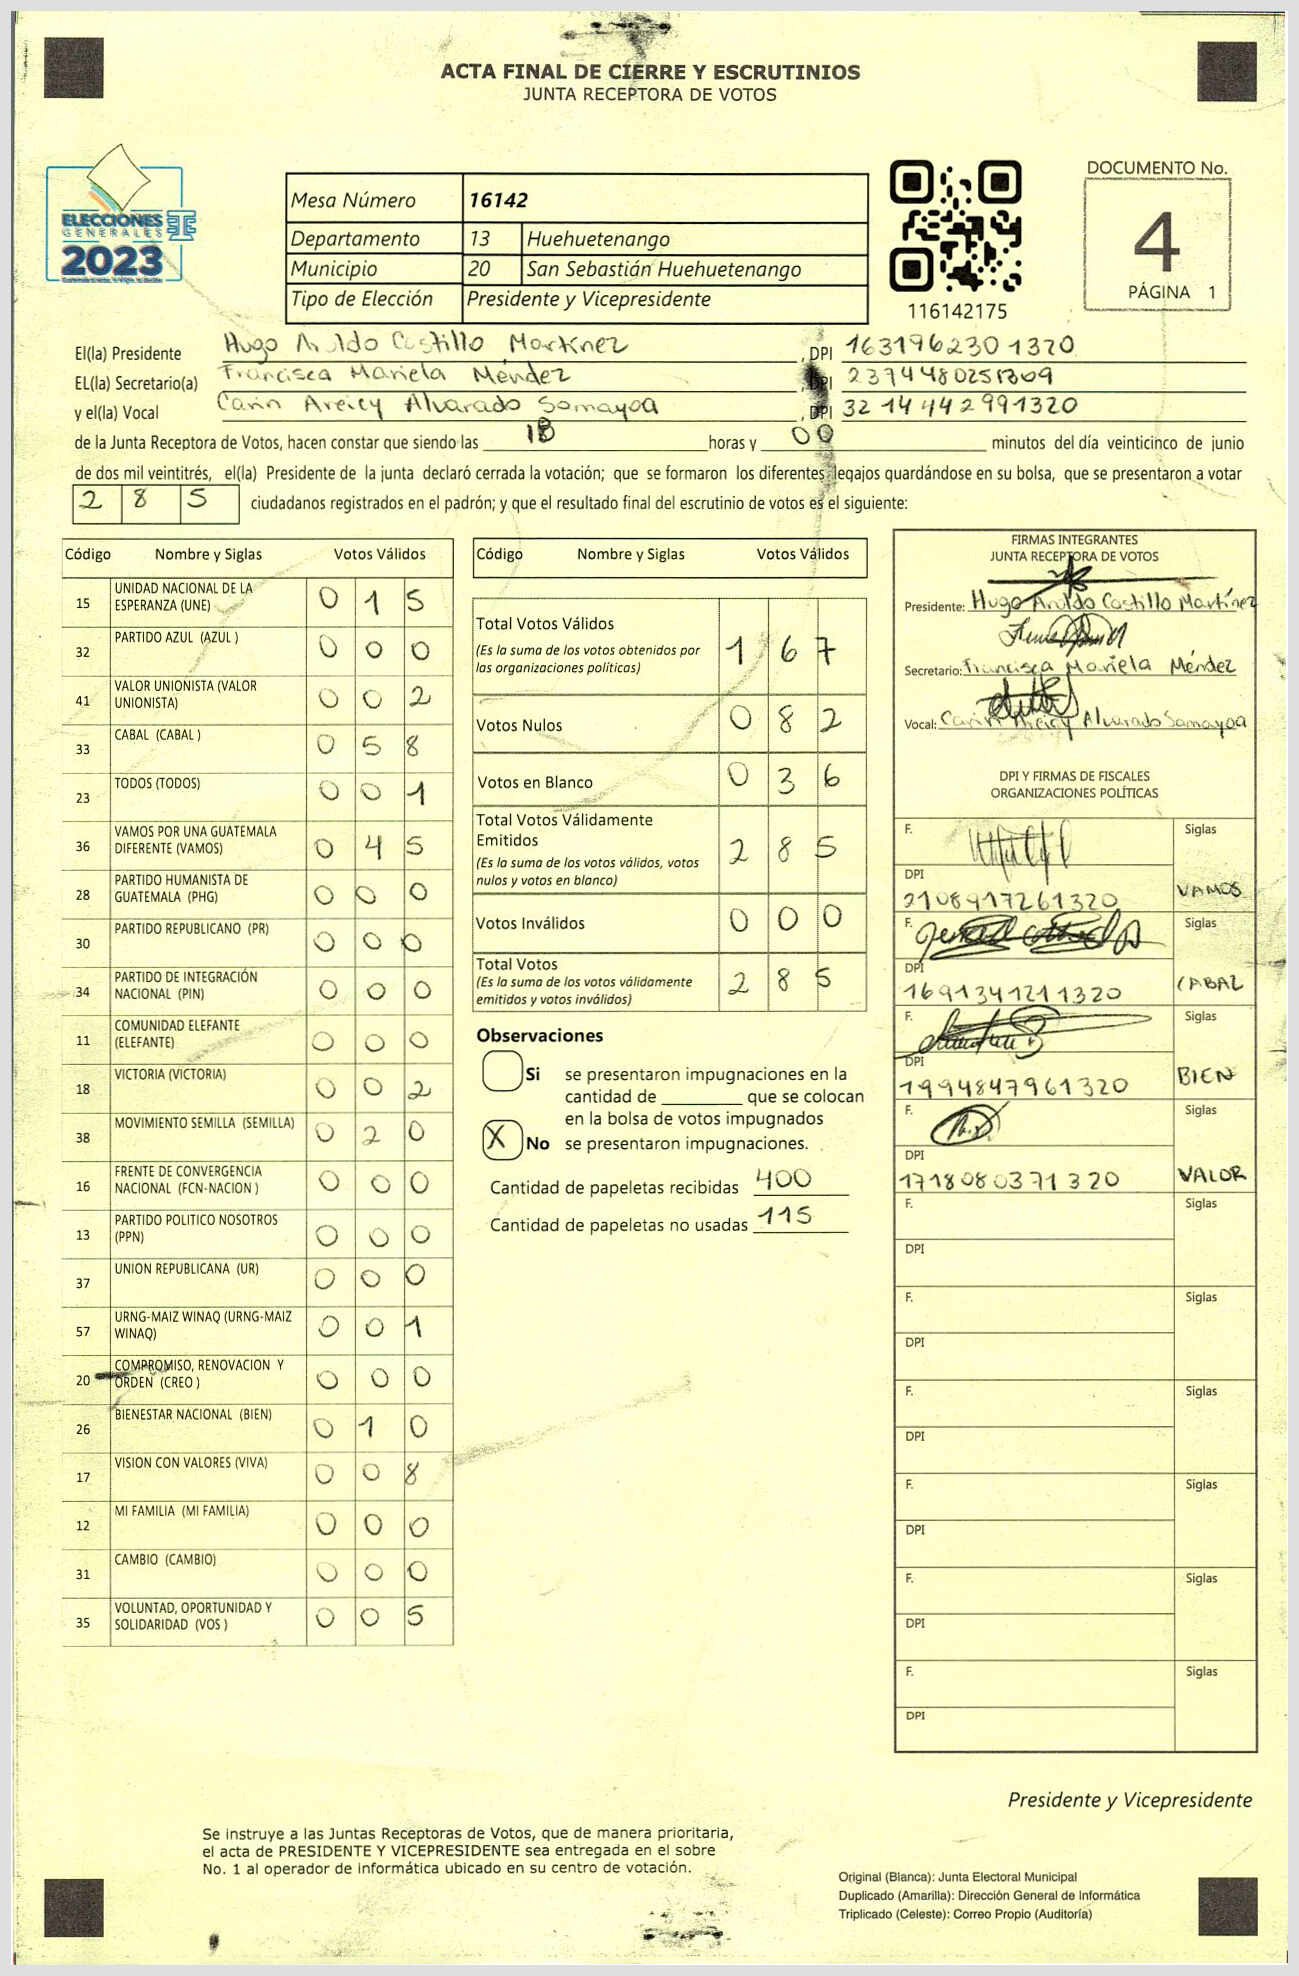 ACTA FINAL DE CIERRE Y ESCRUTINIOS
JUNTA RECEPTORA DE VOTOS
ELECCIONES
GENERALES
2023
Mesa Número 16142
Departamento 13 Huehuetenango
Municipio 20 San Sebastián Huehuetenango
Tipo de Elección Presidente y Vicepresidente
116142175
DOCUMENTO No.
4
PÁGINA 1
El(la) Presidente Hugo Aroldo Castillo Martínez, DPI 1631962301320
EL(la) Secretario(a) Francisca Mariela Méndez, DPI 2374480251309
y el(la) Vocal Carin Areicy Alvarado Somayoa, DPI 3214442991320
de la Junta Receptora de Votos, hacen constar que siendo las 18 horas y 00 minutos del día veinticinco de junio
de dos mil veintitrés, el(la) Presidente de la junta declaró cerrada la votación; que se formaron los diferentes legajos quardándose en su bolsa, que se presentaron a votar
285 ciudadanos registrados en el padrón; y que el resultado final del escrutinio de votos es el siguiente:
Código Nombre y Siglas Votos Válidos
15 UNIDAD NACIONAL DE LA ESPERANZA (UNE) 0 1 5
32 PARTIDO AZUL (AZUL ) 0 0 0
41 VALOR UNIONISTA (VALOR UNIONISTA) 0 0 2
33 CABAL (CABAL ) 0 5 8
23 TODOS (TODOS) 0 0 1
36 VAMOS POR UNA GUATEMALA DIFERENTE (VAMOS) 0 4 5
28 PARTIDO HUMANISTA DE GUATEMALA (PHG) 0 0 0
30 PARTIDO REPUBLICANO (PR) 0 0 0
34 PARTIDO DE INTEGRACIÓN NACIONAL (PIN) 0 0 0
11 COMUNIDAD ELEFANTE (ELEFANTE) 0 0 0
18 VICTORIA (VICTORIA) 0 0 2
38 MOVIMIENTO SEMILLA (SEMILLA) 0 2 0
16 FRENTE DE CONVERGENCIA NACIONAL (FCN-NACION ) 0 0 0
13 PARTIDO POLITICO NOSOTROS (PPN) 0 0 0
37 UNION REPUBLICANA (UR) 0 0 0
57 URNG-MAIZ WINAQ (URNG-MAIZ WINAQ) 0 0 1
20 COMPROMISO, RENOVACION Y ORDEN (CREO ) 0 0 0
26 BIENESTAR NACIONAL (BIEN) 0 1 0
17 VISION CON VALORES (VIVA) 0 0 8
12 MI FAMILIA (MI FAMILIA) 0 0 0
31 CAMBIO (CAMBIO) 0 0 0
35 VOLUNTAD, OPORTUNIDAD Y SOLIDARIDAD (VOS ) 0 0 5
Código Nombre y Siglas Votos Válidos
Total Votos Válidos 1 6 7
(Es la suma de los votos obtenidos por
las organizaciones políticas)
Votos Nulos 0 8 2
Votos en Blanco 0 3 6
Total Votos Válidamente
Emitidos 2 8 5
(Es la suma de los votos válidos, votos
nulos y votos en blanco)
Votos Inválidos 0 0 0
Total Votos 2 8 5
(Es la suma de los votos válidamente
emitidos y votos inválidos)
Observaciones
Si se presentaron impugnaciones en la
cantidad de ________ que se colocan
en la bolsa de votos impugnados
X No se presentaron impugnaciones.
Cantidad de papeletas recibidas 400
Cantidad de papeletas no usadas 115
FIRMAS INTEGRANTES
JUNTA RECEPTORA DE VOTOS
Presidente: Hugo Aroldo Castillo Martínez
Secretario: Francisca Mariela Méndez
Vocal: Carin Areicy Alvarado Somayoa
DPI Y FIRMAS DE FISCALES
ORGANIZACIONES POLÍTICAS
F. Siglas
DPI
2108917261320 VAMOS
F. Siglas
DPI
1691341211320 CABAL
F. Siglas
DPI
1994847961320 BIEN
F. Siglas
DPI
1718080371320 VALOR
F. Siglas
DPI
F. Siglas
DPI
F. Siglas
DPI
F. Siglas
DPI
F. Siglas
DPI
F. Siglas
DPI
Presidente y Vicepresidente
Se instruye a las Juntas Receptoras de Votos, que de manera prioritaria,
el acta de PRESIDENTE Y VICEPRESIDENTE sea entregada en el sobre
No. 1 al operador de informática ubicado en su centro de votación.
Original (Blanca): Junta Electoral Municipal
Duplicado (Amarilla): Dirección General de Informática
Triplicado (Celeste): Correo Propio (Auditoría)